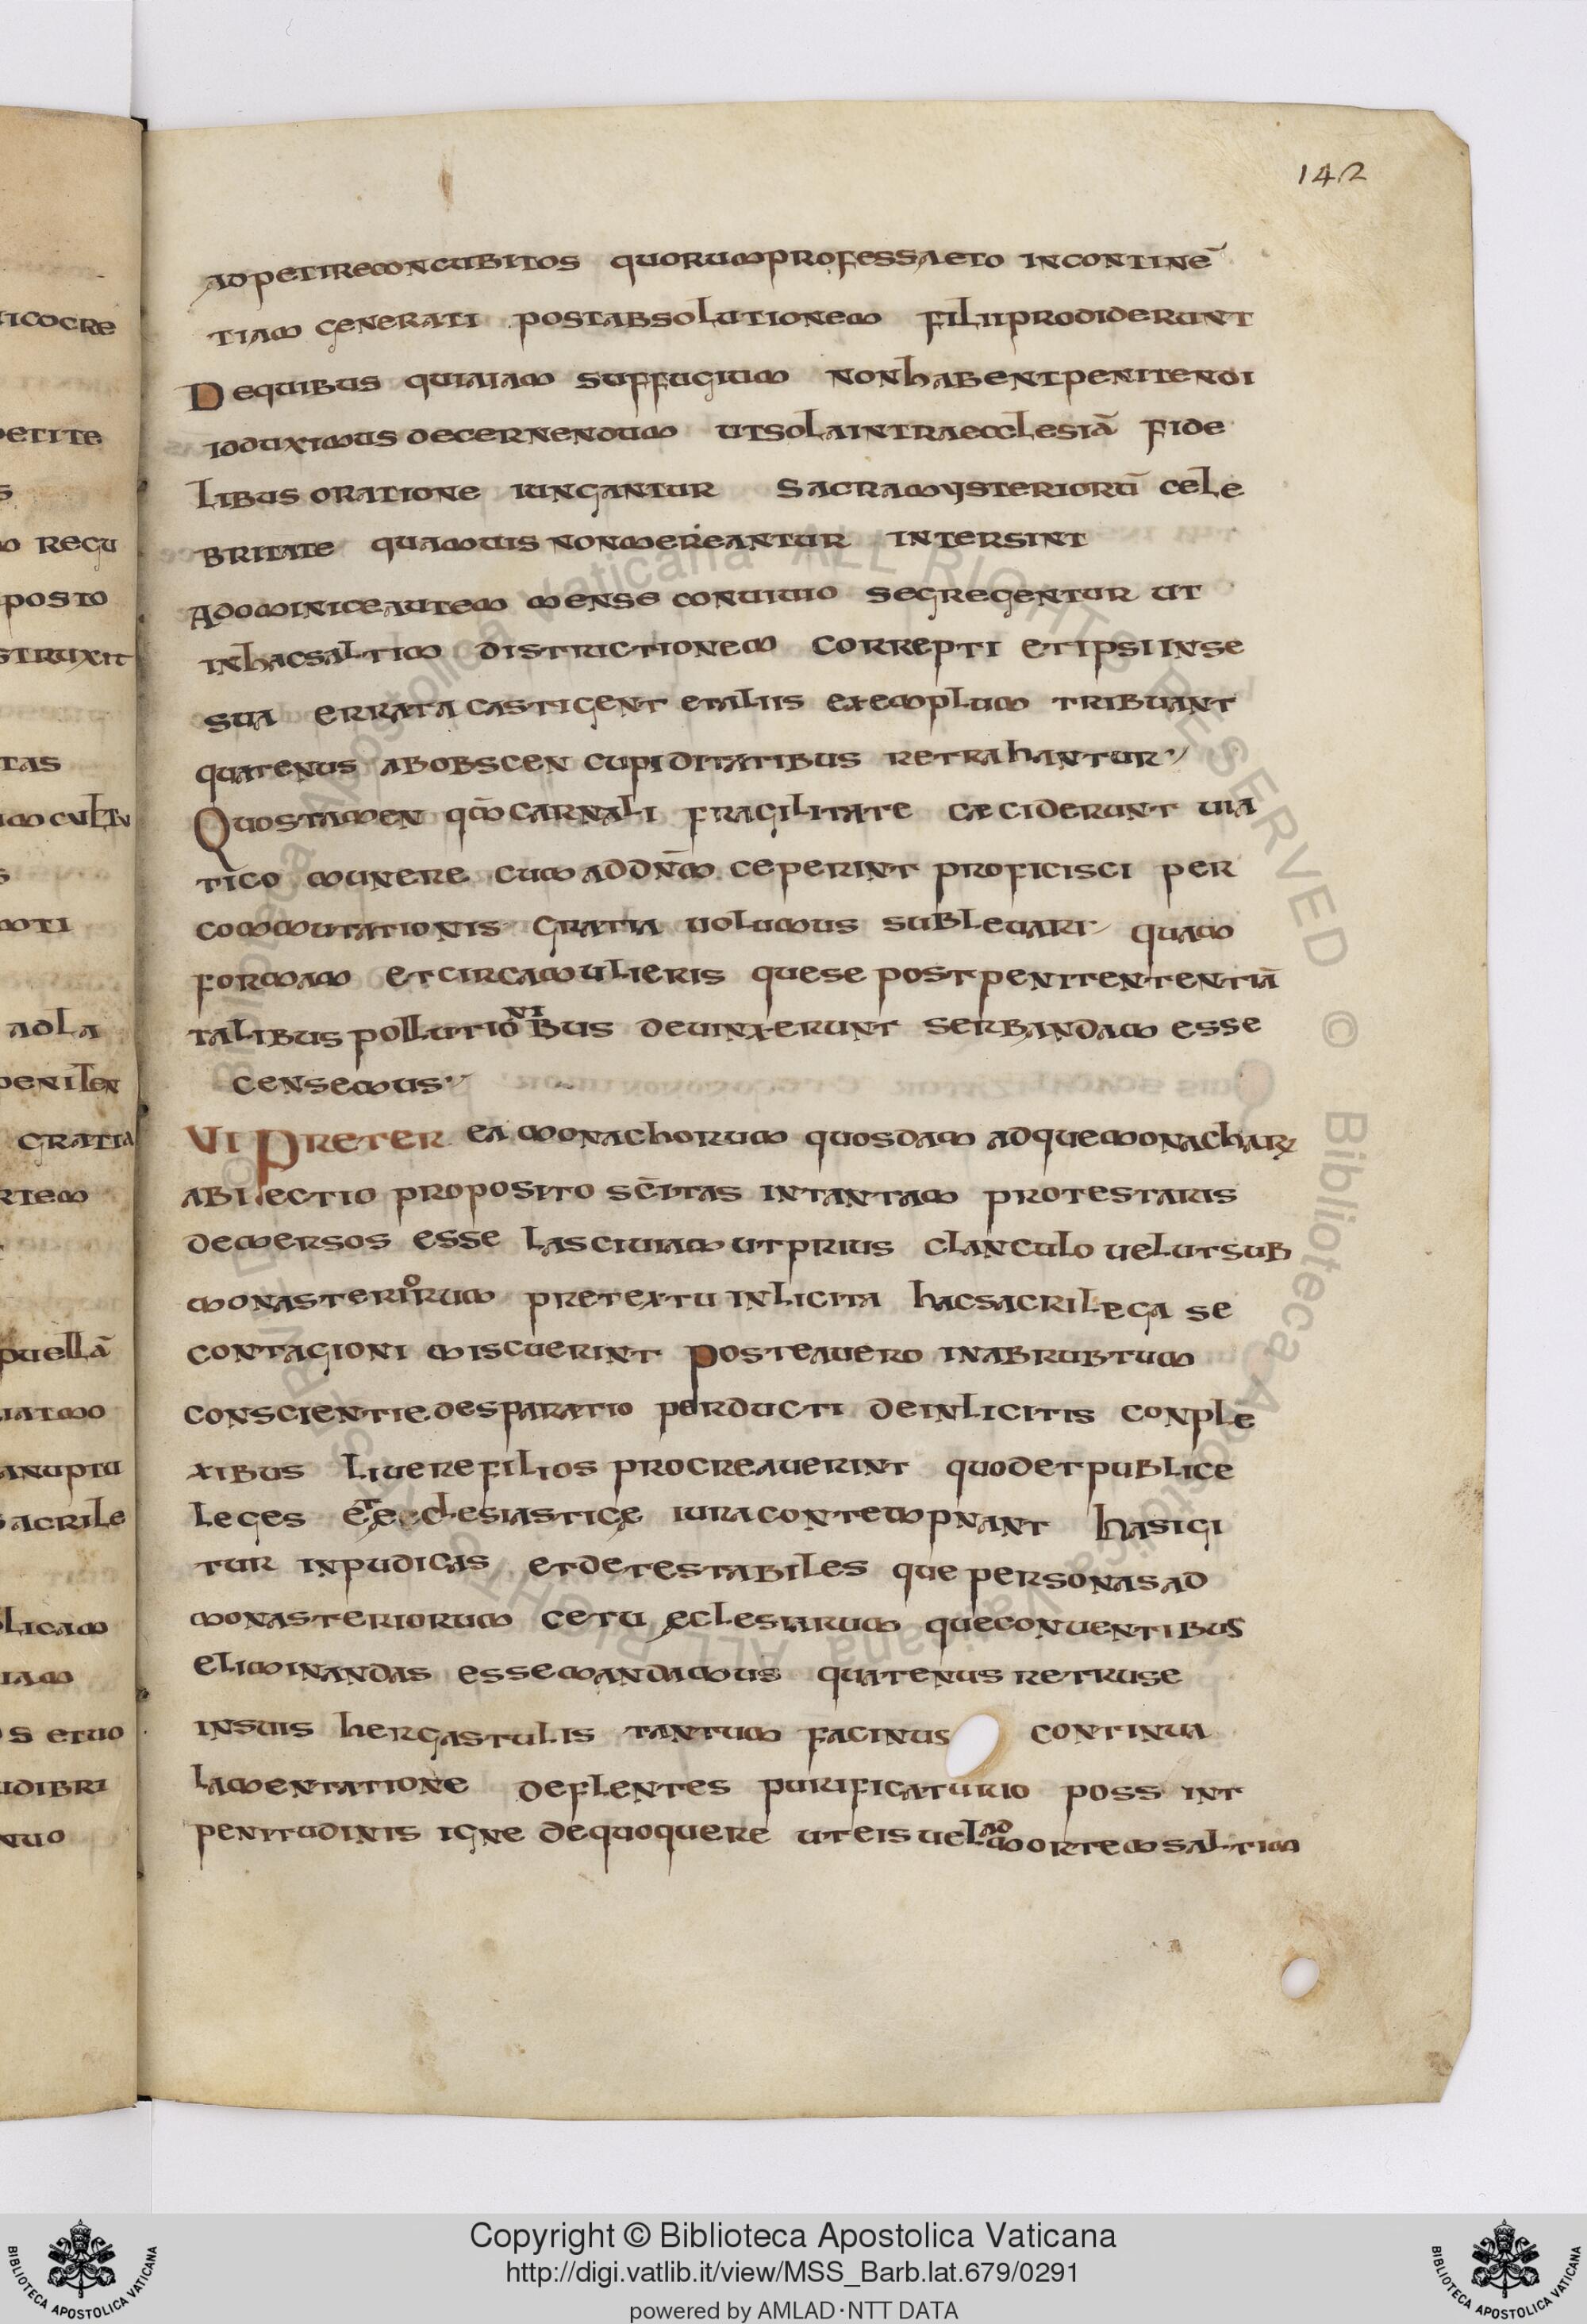 142
adpetireconcubitos quorumprofessaeto incontinē
tiam generati postabsolutionem filiiprodiderunt
Dequibus quiaiam suffugium nonhabentpenitendi
idduximusdecernendum utsolaintraecclesiā fide
libus oratione iungantur sacramysteriorū cele
britate quamuis nonmereantur intersint
Adominiceautem mense conuiuio segregentur ut
inhacsaltim districtionem correpti etipsiinse
sua errata castigent etaliis exemplum tribuant
quatenus abobscen cupiditatibus retrahantur
Quostamen qm̄carnali fragilitate cęciderunt uia
tico munere cum addn̄m ceperint proficisci per
commutationis gratia uolumus subleuari quam
formam etcircamulieris quese postpenitententiā
talibus pollutionibus deuinxerunt serbandam esse
censemus
VI Preter ea monachorum quosdam adquemonachar
abiectio proposito sc̄itas intantam protestaris
demersos esse lasciuiam utprius clanculo uelutsub
monasteriorum pretextu inlicita hacsacrilega se
contagioni miscuerint posteauero inabrubtum
conscientie desparatio perducti deinlicitis conple
xibus liuere filios procreauerint quodetpublice
leges et ecclesiastice iuracontempnant hasigi
tur inpudicas etdetestabiles que personas ad
monasteriorum cetu eclesiarum queconuentibus
eliminandas essemandamus quatenus retruse
insuis hergastulis tantum facinus continua
lamentatione deflentes purificaturio poss int
penitudinis igne dequoquere uteisueladmortemsaltim
icocre
petite
s
m regu
posto
struxit
tas
umcultu
s
moti
adla
peniten
gratia
riem
puellā
iatmo
anuptu
sacrile
licam
iam
s etuo
udibri
nuo
Copyright © Biblioteca Apostolica Vaticana
http://digi.vatlib.it/view/MSS_Barb.lat.679/0291
powered by AMLAD·NTT DATA
BIBLIOTECA APOSTOLICA VATICANA
BIBLIOTECA APOSTOLICA VATICANA
© Biblioteca Apostolica Vaticana ALL RIGHTS RESERVED © Biblioteca Apostolica Vaticana ALL RIGHTS RESERVED